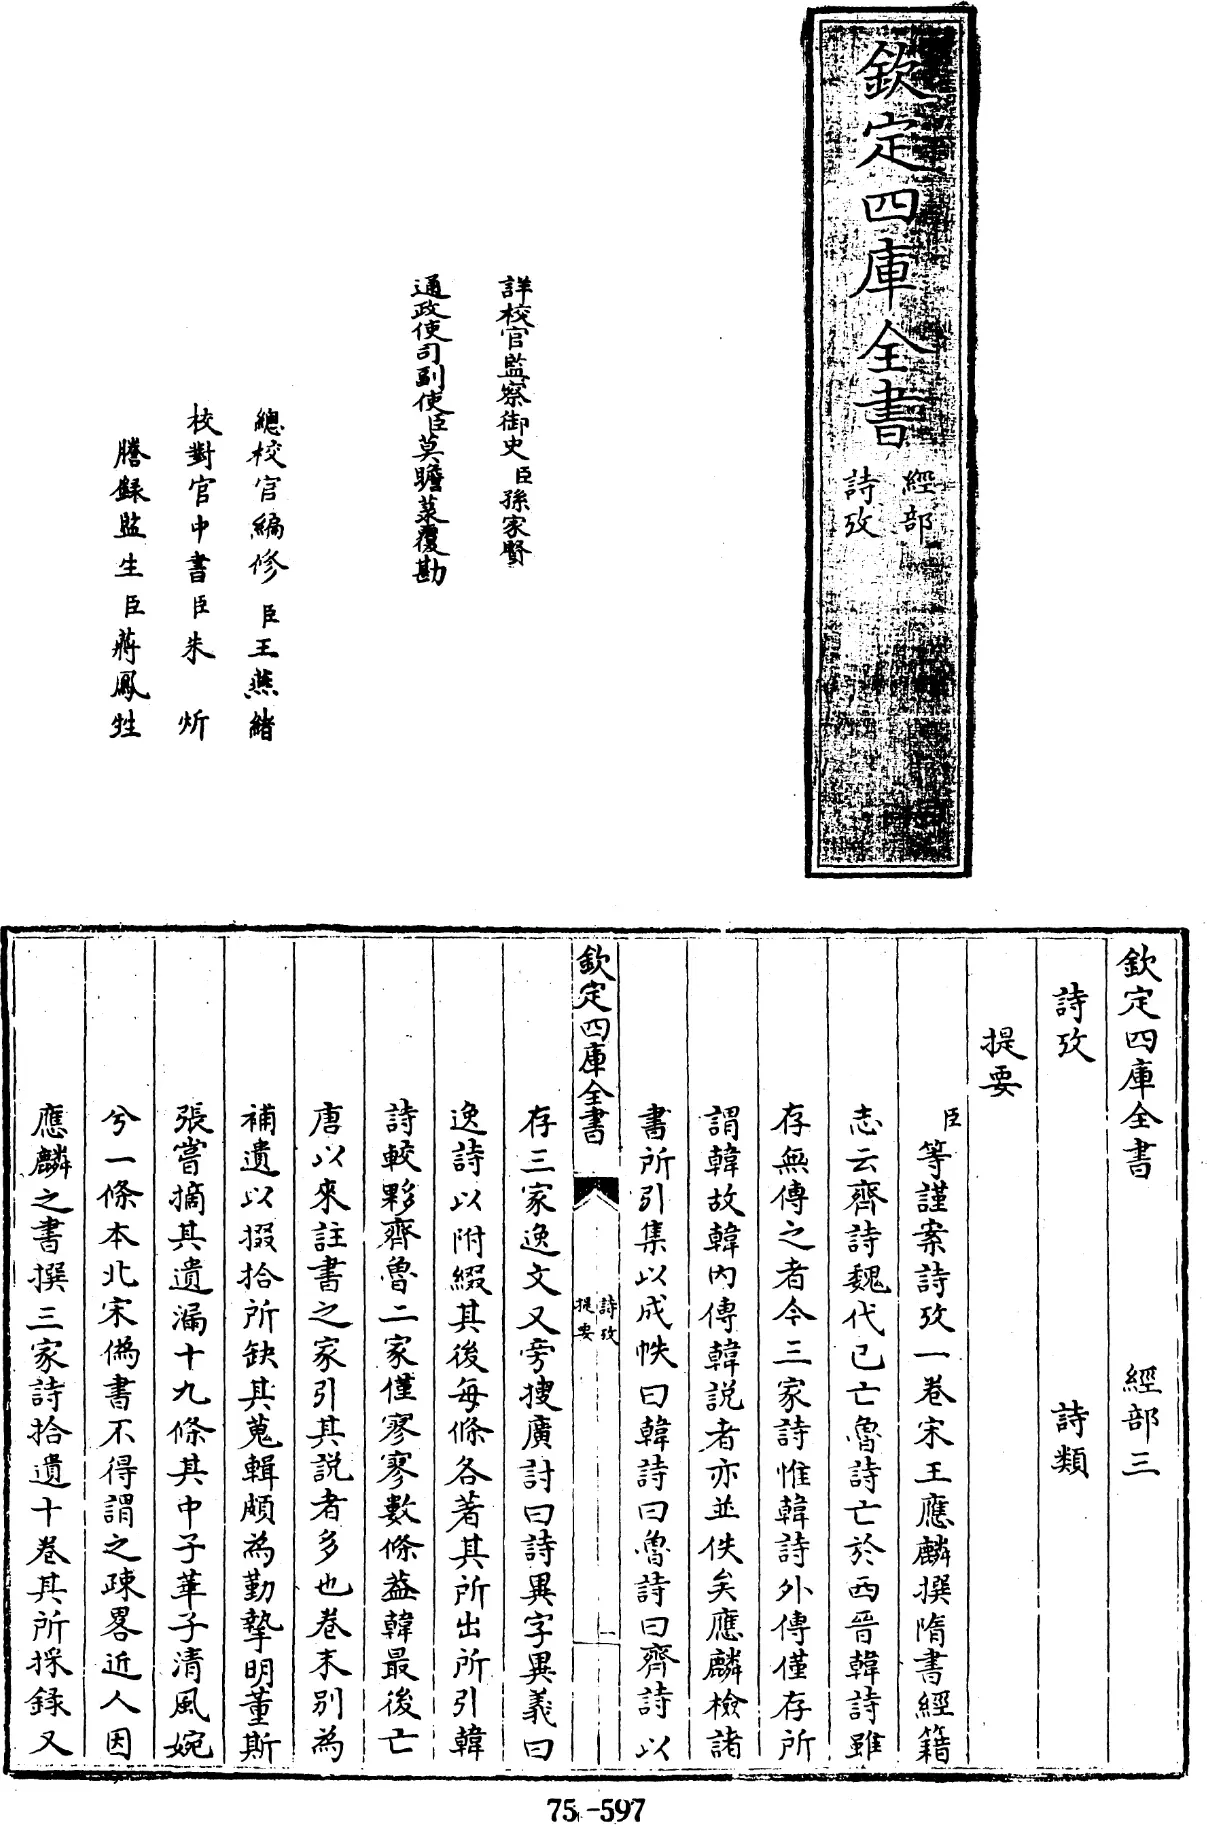 欽定四庫全書
經部
詩攷
詳校官監察御史臣孫家賢
通政使司副使臣莫瞻菉覆勘
總校官編修臣王燕緒
校對官中書臣朱炘
謄錄監生臣蔣鳳牲
欽定四庫全書 經部三
詩攷 詩類
提要
臣等謹案詩攷一卷宋王應麟撰隋書經籍
志云齊詩魏代已亡魯詩亡於西晉韓詩雖
存無傳之者今三家詩惟韓詩外傳僅存所
謂韓故韓内傳韓説者亦並佚矣應麟檢諸
書所引集以成帙曰韓詩曰魯詩曰齊詩以
欽定四庫全書
詩攷
提要
一
存三家逸文又旁搜廣討曰詩異字異義曰
逸詩以附綴其後每條各著其所出所引韓
詩較夥齊魯二家僅寥寥數條葢韓最後亡
唐以來註書之家引其説者多也卷末別為
補遺以掇拾所缺其蒐輯頗為勤摯明董斯
張嘗摘其遺漏十九條其中子華子清風婉
兮一條本北宋偽書不得謂之疎畧近人因
應麟之書撰三家詩拾遺十卷其所採錄又
75-597